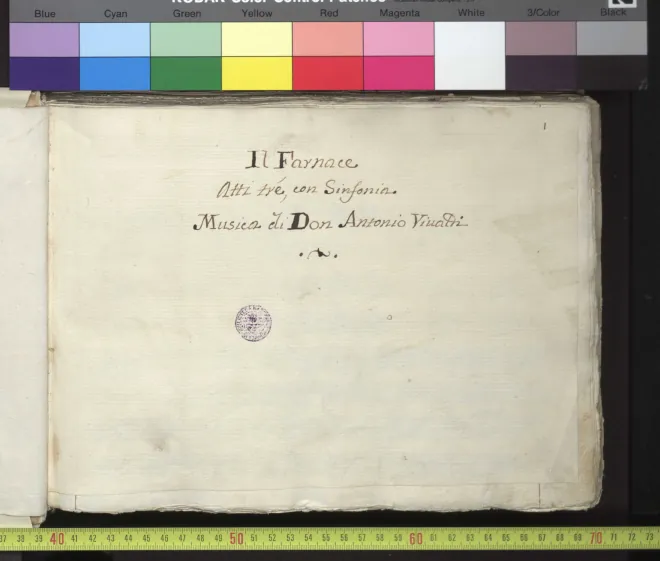 KODAK Color Control Patches
Blue Cyan Green Yellow Red Magenta White 3/Color Black
1
Il Farnace
Atti tré, con Sinfonia
Musica di Don Antonio Viualdi
37 38 39 40 41 42 43 44 45 46 47 48 49 50 51 52 53 54 55 56 57 58 59 60 61 62 63 64 65 66 67 68 69 70 71 72 73